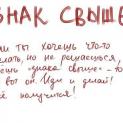 ЗНАК СВЫШЕ
ли ты хочешь что-то
лать, но не решаешься,
ешь "знака свыше" - то
вот он. Иди и делай!
сё получится!